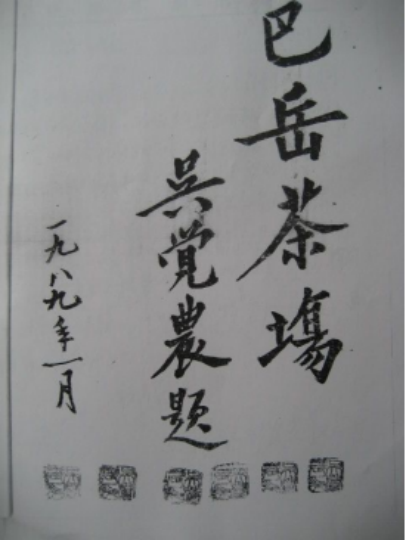 巴岳茶場
吳覚農题
一九八九年一月